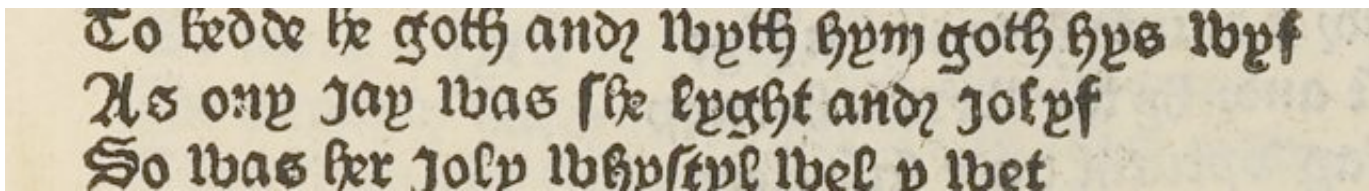 To bedde he goth and wyth hym goth hys wyf
As ony jay was she lyght and jolyf
So was her joly whystyl wel y wet